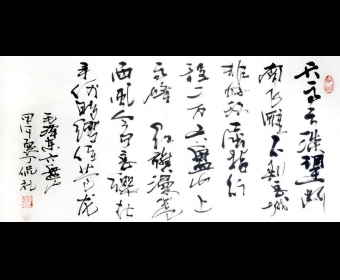 天高云淡望断
南飞雁不到长城
非好汉屈指行
程二万六盘山上
高峰红旗漫卷
西风今日长缨在
手何时缚住苍龙
毛泽东六盘山